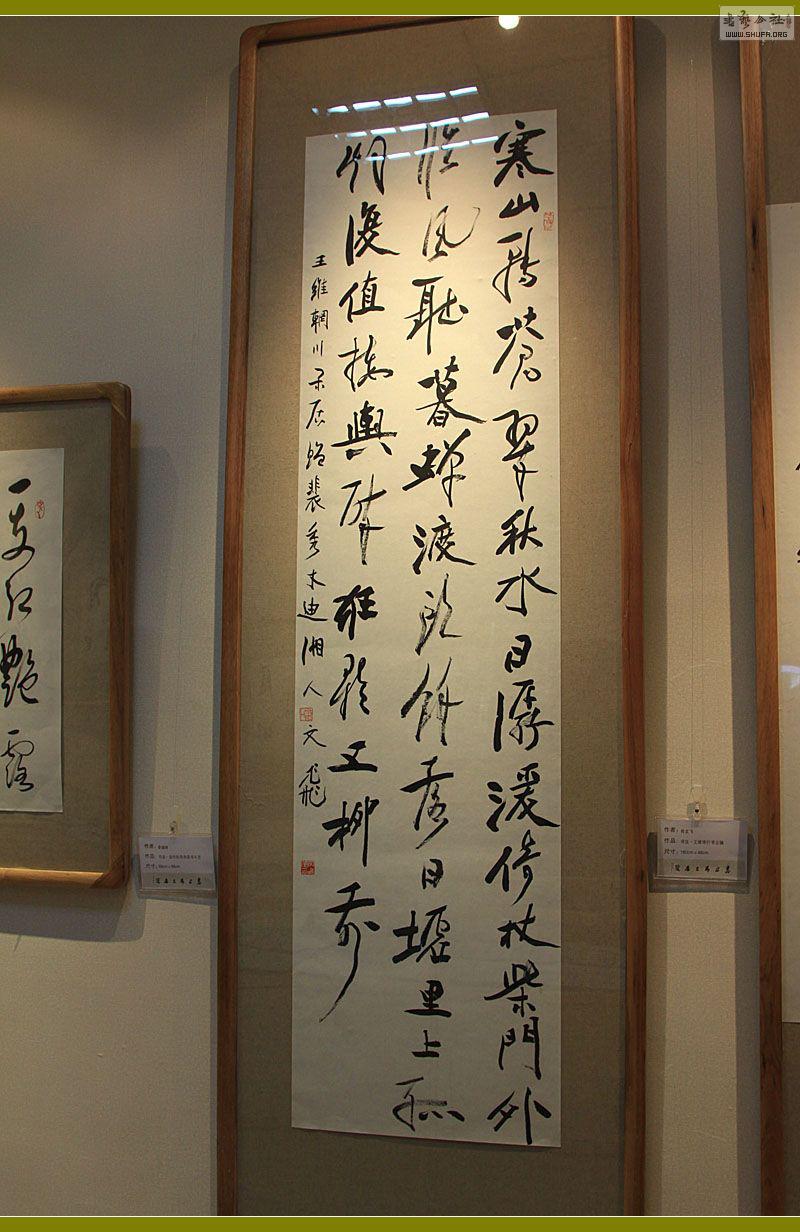 書藝公社
WWW.SHUFA.ORG
寒山轉蒼翠秋水日潺湲倚杖柴門外
臨風聽暮蟬渡頭餘落日墟里上孤
烟復值接輿醉狂歌五柳前
王維輞川閑居贈裴秀才迪湘人文飛
一支红艷露
作者:
作品:
尺寸:
作者:
作品:
尺寸: